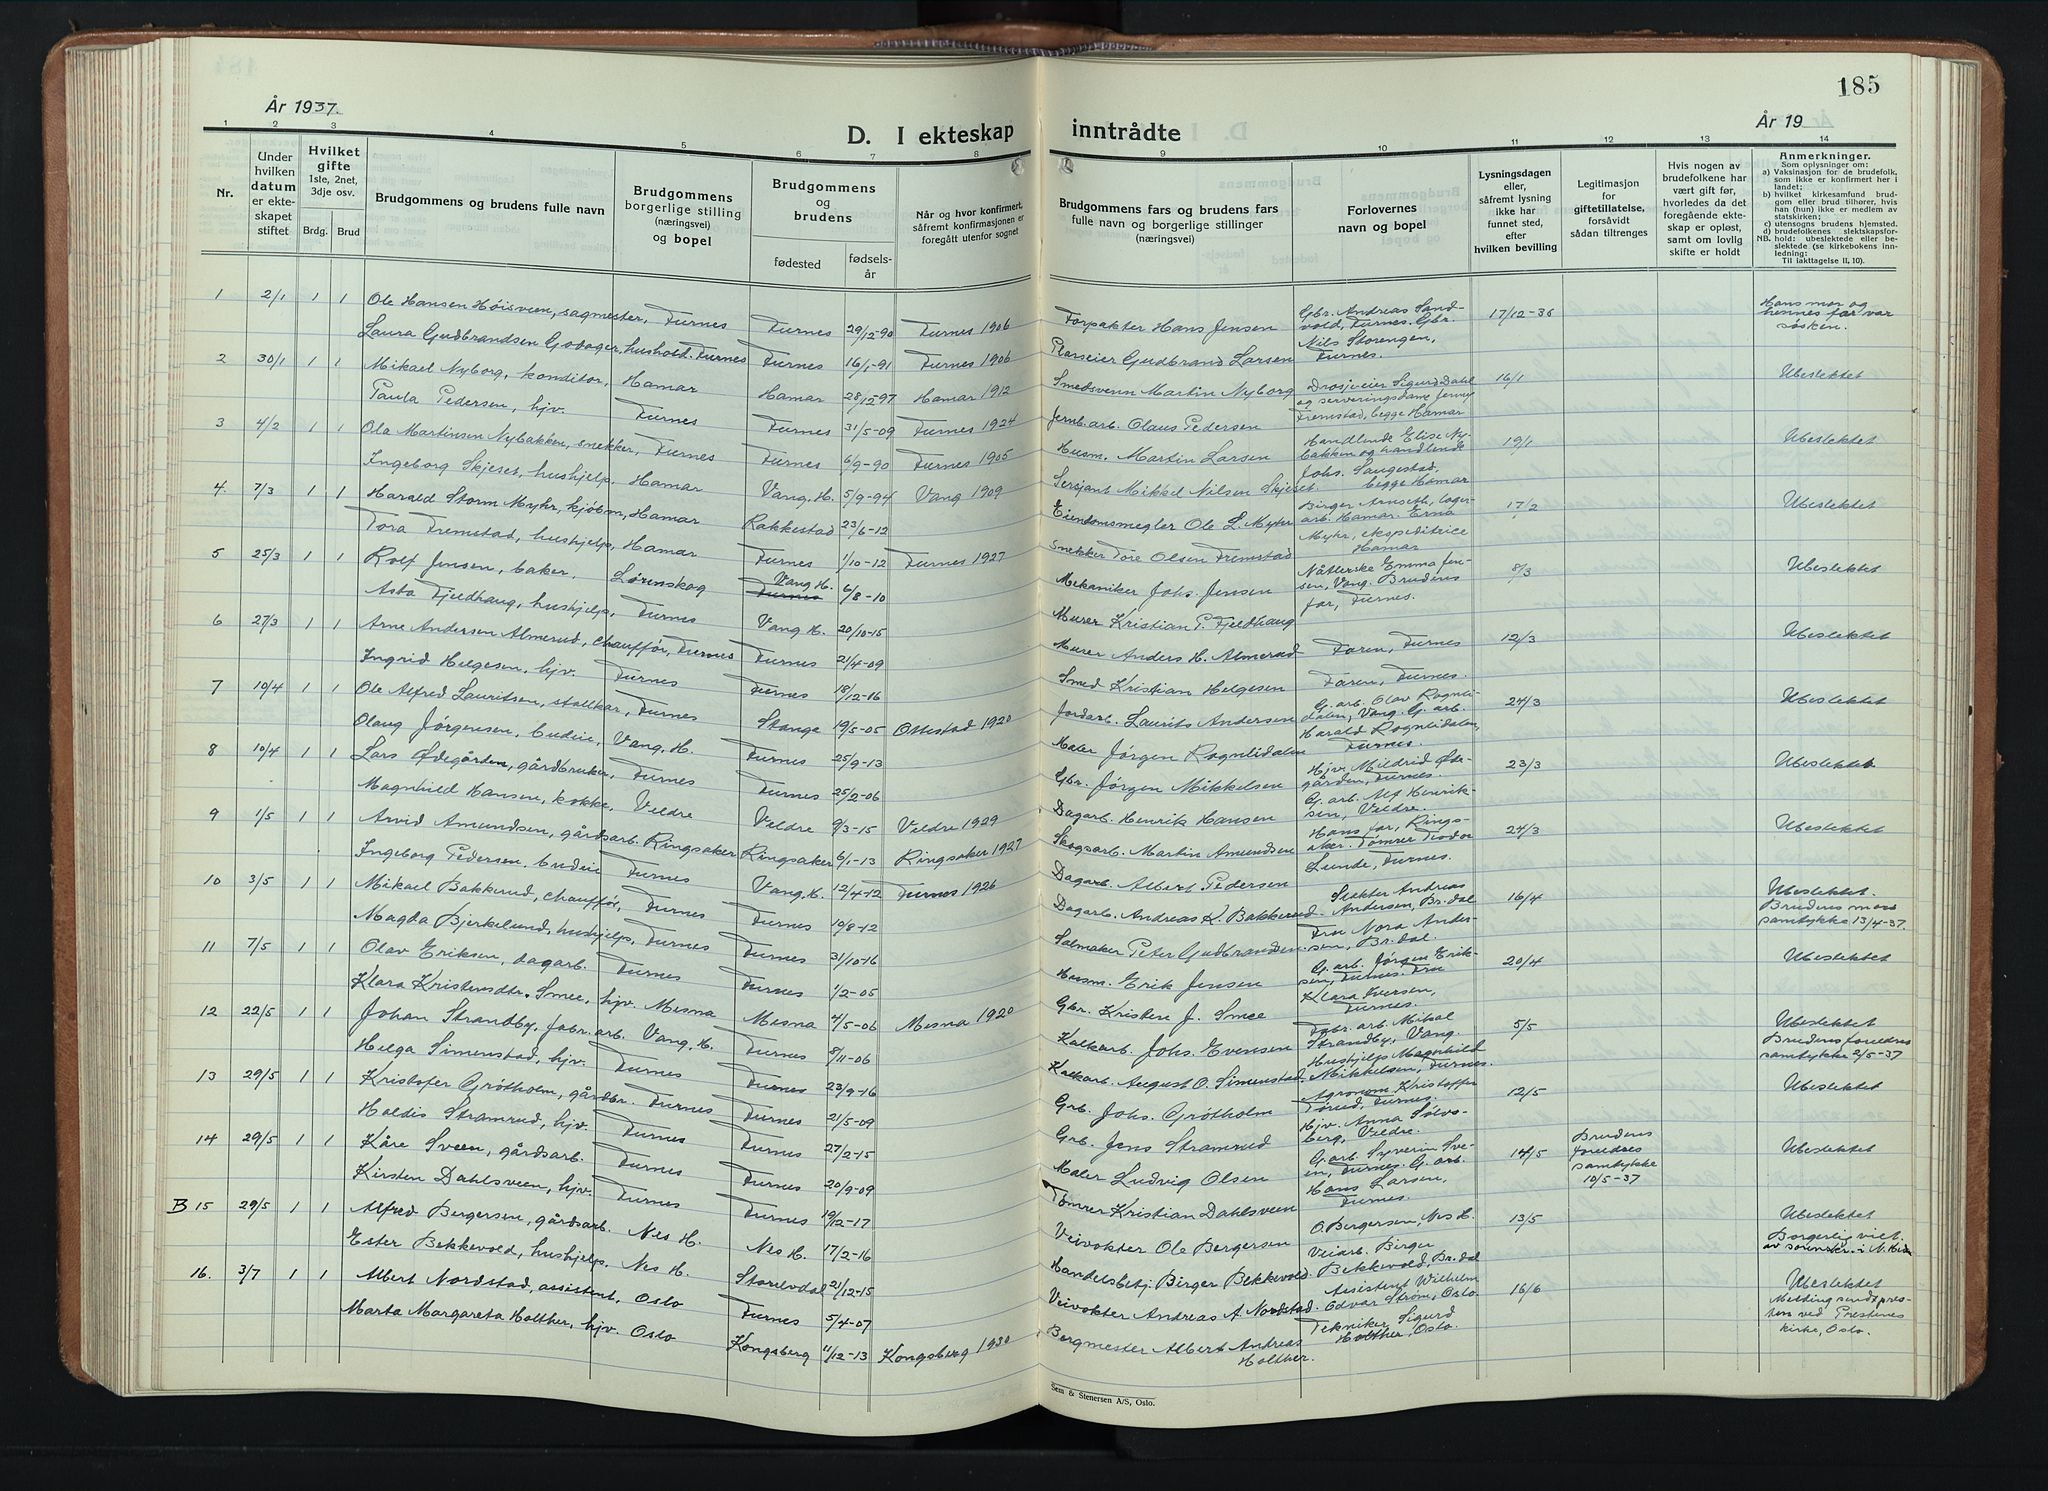 185
År 1937.
År 19
D. I ekteskap inntrådte
1 2 3 4 5 6 7 8 9 10 11 12 13 14
Nr.
Under hvilken datum er ekteskapet stiftet
Hvilket gifte 1ste, 2net, 3dje osv.
Brdg. Brud
Brudgommens og brudens fulle navn
Brudgommens borgerlige stilling (næringsvei) og bopel
Brudgommens og brudens
fødested
fødselsår
Når og hvor konfirmert, såfremt konfirmasjonen er foregått utenfor sognet
Brudgommens fars og brudens fars fulle navn og borgerlige stillinger (næringsvei)
Forlovernes navn og bopel
Lysningsdagen eller, såfremt lysning ikke har funnet sted, efter hvilken bevilling
Legitimasjon for giftetillatelse, forsåvidt sådan tiltrenges
Hvis nogen av brudefolkene har vært gift før, hvorledes da det foregående ekteskap er opløst, samt om lovlig skifte er holdt
Anmerkninger.
Som oplysninger om:
a) Vaksinasjon for de brudefolk, som ikke er konfirmert her i landet;
b) hvilket kirkesamfund brudgom eller brud tilhører, hvis han (hun) ikke er medlem av statskirken;
c) utensogns brudens hjemsted.
d) brudefolkenes slektskapsforhold: ubeslektede eller beslektede (se kirkebokens innledning;
NB.
Til iakttagelse II, 10).
1 2/1 1 1 Ole Hansen Høisveen, sagmester, Furnes Furnes 29/12-90 Furnes 1906 Forpakter Hans Jensen Gbr. Andreas Sandvold, Furnes. Gbr. 17/12-36 Hans mor og hennes far var søsken.
Laura Gudbrandsen Godager, hushold. Furnes Furnes 16/1-91 Furnes 1906 Plasseier Gudbrand Larsen Nils Storengen, Furnes.
2 30/1 1 1 Mikael Nyborg, konditor, Hamar Hamar 28/12-97 Hamar 1912 Smedsvenn Martin Nyborg Drosjeeier Sigurd Dahl og serveringsdame Jenny 16/1 Ubeslektet
Paula Pedersen, hjv. Furnes Furnes 31/5-09 Furnes 1924 Jernb.arb. Olaus Pedersen Fremstad, begge Hamar
3 4/2 1 1 Ola Martinsen Nybakken, snekker, Furnes Furnes 6/9-90 Furnes 1905 Husm. Martin Larsen Handlende Elise Nybakken og handlende 19/1 Ubeslektet
Ingeborg Skjeset, hushjelp, Hamar Vang, H. 5/9-94 Vang 1909 Sersjant Mikkel Nilsen Skjeset. Johs. Saugestad, begge Hamar
4. 7/3 1 1 Harald Storm Myhr, kjøbm, Hamar Rakkestad 23/6-12 Eiendomsmegler Ole L. Myhr Birger Arnseth, lagerarb. Hamar. Erna 17/2 Ubeslektet
Tora Fremstad, hushjelp, Hamar Furnes 1/10-12 Furnes 1927 Snekker Tore Olsen Fremstad Myhr, ekspeditrice Hamar
5 25/3 1 1 Rolf Jensen, baker, Lørenskog Vang H. Furnes 6/8-10 Mekaniker Johs. Jensen Nåtlerske Emma Jensen, Vang. Brudens 8/3 Ubeslektet
Asta Fjeldhaug, hushjelp, Furnes Vang H. 20/10-15 Murer Kristian P. Fjeldhaug far, Furnes.
6 27/3 1 1 Arne Andersen Almerud, chauffør, Furnes Furnes 21/4-09 Murer Anders H. Almerud Faren, Furnes 12/3 Ubeslektet
Ingrid Helgesen, hjv. Furnes Furnes 18/12-16 Smed Kristian Helgesen Faren, Furnes.
7 10/4 1 1 Ole Alfred Lauritsen, stallkar, Furnes Stange 19/5-05 Ottestad 1920 Jordarb. Laurits Andersen G. arb. Olav Rognlidalen, Vang. G. arb. 24/3 Ubeslektet
Olaug Jørgensen, budeie, Vang, H. Furnes 25/9-13 Maler Jørgen Rognlidalen Harald Rognlidalen, Furnes.
8 10/4 1 1 Lars Ødegården, gårdbruker, Furnes Furnes 25/2-06 Gbr. Jørgen Mikkelsen Hjv. Mildrid Ødegården, Furnes. 23/3 Ubeslektet
Magnhild Hansen, kokke, Veldre Veldre 9/3-15 Veldre 1929 Dagarb. Henrik Hansen G. arb. Alf Henriksen, Veldre.
9 1/5 1 1 Arvid Amundsen, gårdsarb. Ringsaker Ringsaker 6/1-13 Ringsaker 1927 Skogsarb. Martin Amundsen Hans far, Ringsaker. Tømrer Teodor 24/3 Ubeslektet
Ingeborg Pedersen, budeie Furnes Vang H. 12/4-12 Furnes 1926 Dagarb. Albert Pedersen Lunde, Furnes.
10 3/5 1 1 Mikael Bakkerud, chauffør, Furnes Furnes 10/8-12 Dagarb. Andreas K. Bakkerud Slakter Andreas Andersen, Br.dal 16/4 Ubeslektet. Brudens mors samtykke 13/4-37.
Magda Bjerkelund, hushjelp, Furnes Furnes 31/10-16 Salmaker Peter Gudbrandsen. Fru Nora Andersen, Br.dal.
11 7/5 1 1 Olav Eriksen, dagarb. Furnes Furnes 1/2-05 Husm. Erik Jensen G. arb. Jørgen Eriksen, Furnes. Fru 20/4 Ubeslektet
Klara Kristensdtr. Smee, hjv. Mesna Mesna 4/5-06 Mesna 1920 Gbr. Kristen J. Smee Klara Iversen, Furnes.
12 22/5 1 1 Johan Strandby, fabr. arb. Vang, H. Furnes 8/11-06 Kalkarb. Johs. Evensen Fabr. arb. Mikal Strandby, Vang. 5/5 Ubeslektet Brudens foreldres samtykke 2/5-37
Helga Simenstad, hjv. Furnes Furnes 23/9-16 Kalkarb. August O. Simenstad. Hushjelp Magnhild Mikkelsen, Furnes.
13 29/5 1 1 Kristofer Grøtholm, gårdbr. Furnes Furnes 21/5-09 Grb. Johs. Grøtholm Agronom Kristoffer Tørud, Furnes. 12/5 Ubeslektet
Haldis Stramrud, hjv. Furnes Furnes 27/2-15 Grb. Jens Stramrud Hjv. Anna Sølvsberg, Veldre.
14 29/5 1 1 Kåre Sveen, gårdsarb. Furnes Furnes 20/9-09 Maler Ludvig Olsen G. arb. Syverin Sveen, Furnes. G. arb. 14/5 Brudens foreldres samtykke 10/5-37 Ubeslektet
Kirsten Dahlsveen, hjv. Furnes Furnes 19/12-17 Tømrer Kristian Dahlsveen Hans Larsen, Furnes.
B 15 29/5 1 1 Alfred Bergersen, gårdsarb. Nes H. Nes H. 17/2-16 Veivokter Ole Bergersen O. Bergersen, Nes H. 13/5 Ubeslektet Borgerlig viet av sorenskr. i N. Hedm
Ester Bekkevold, hushjelp, Nes H. Storelvdal 21/12-15 Handelsbetj. Birger Bekkevold. Veiarb. Birger Bekkevold, Br.dal
16. 3/7 1 1 Albert Nordstad, assistent, Oslo Furnes 5/4-07 Veivokter Andreas A. Nordstad. Assistent Wilhelm Edvar Strøm, Oslo 16/6 Ubeslektet Melding sendt presten ved Prestenes kirke, Oslo.
Marta Margareta Holther, hjv. Oslo Kongsberg 11/12-13 Kongsberg 1930 Bergmester Albert Andreas Holther. Tekniker Sigurd Holther, Oslo.
Sem & Stenersen A/S, Oslo.